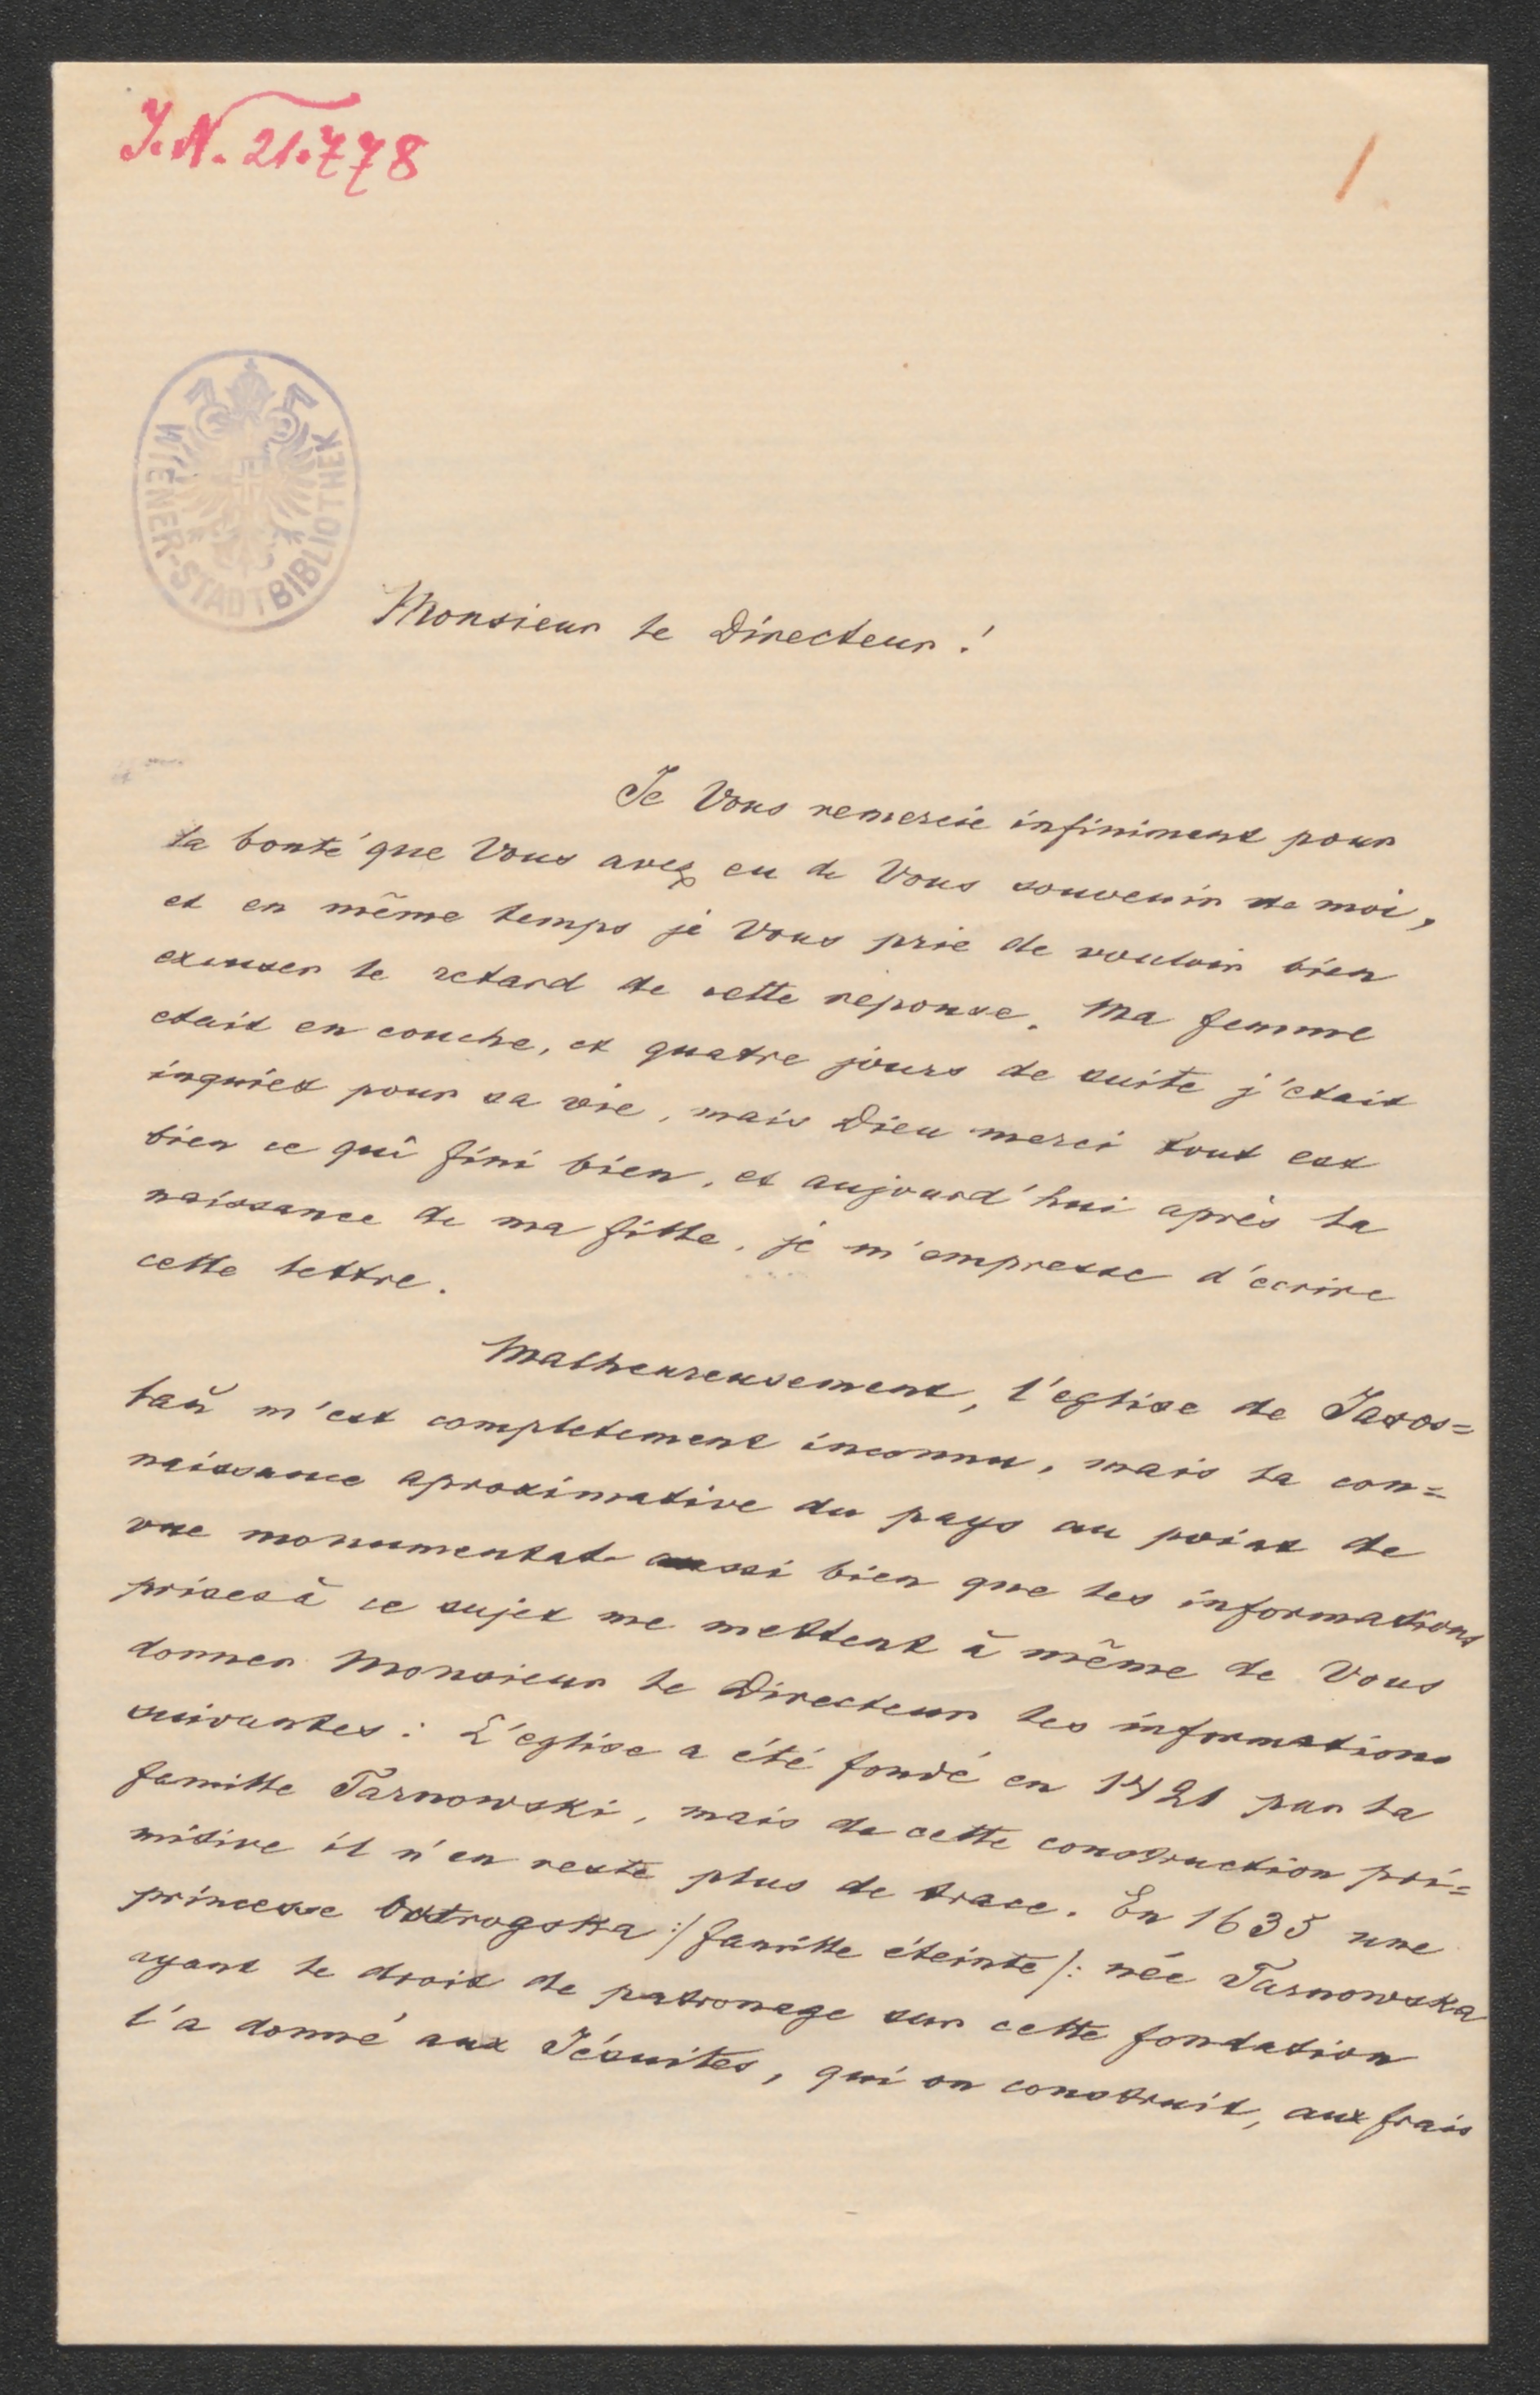 J.N. 21.778
1
WIENER-STADTBIBLIOTHEK
Monsieur le Directeur!
Je Vous remercie infiniment pour
la bonté que Vous avez eu de Vous souvenir de moi,
et en même temps je Vous prie de vouloir bien
excuser le retard de cette reponse. Ma femme
etait en couche, et quatre jours de suite j'etait
inquiet pour sa vie, mais Dieu merci tout est
bien ce qui fini bien, et aujourd'hui après la
naissance de ma fille, je m'empresse d'ecrire
cette lettre.
Malheureusement, l'eglise de Jaros=
laŭ m'est completement inconnu, mais la con=
naissance aproximative du pays au point de
vue monumental aussi bien que les informations
prises à ce sujet me mettent à même de Vous
donner Monsieur le Directeur les informations
suivantes: L'eglise a été fondé en 1421 par la
famille Tarnowski, mais de cette construction pri=
mitive il n'en reste plus de trace. En 1635 une
princesse Ostrogska :/famille éteinte/: née Tarnowska
ayant le droit de patronage sur cette fondation
l'a donné aux Jésuites, qui on construit, aux frais